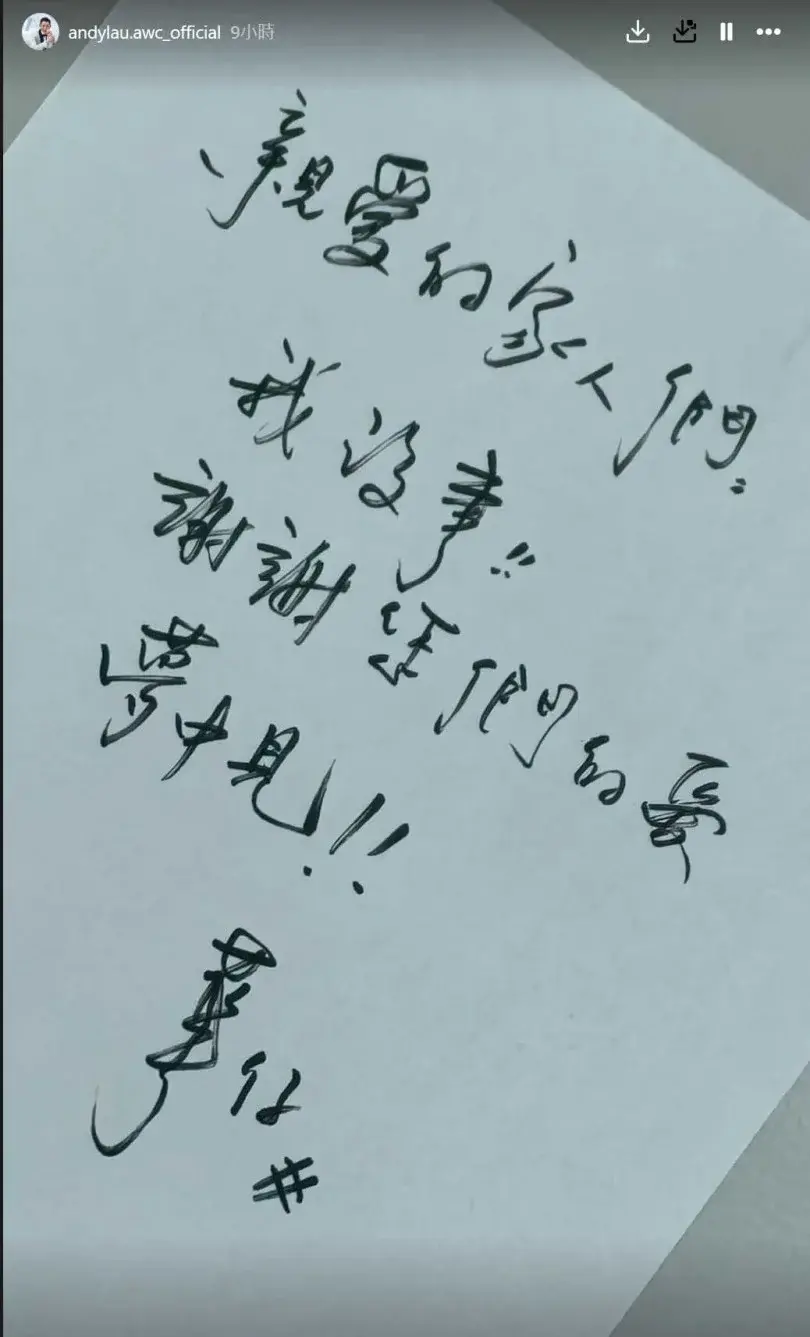 andylau.awc_official 9小時
親愛的家人們:
我沒事!!
謝謝您們的愛
夢中見!!
華仔
#